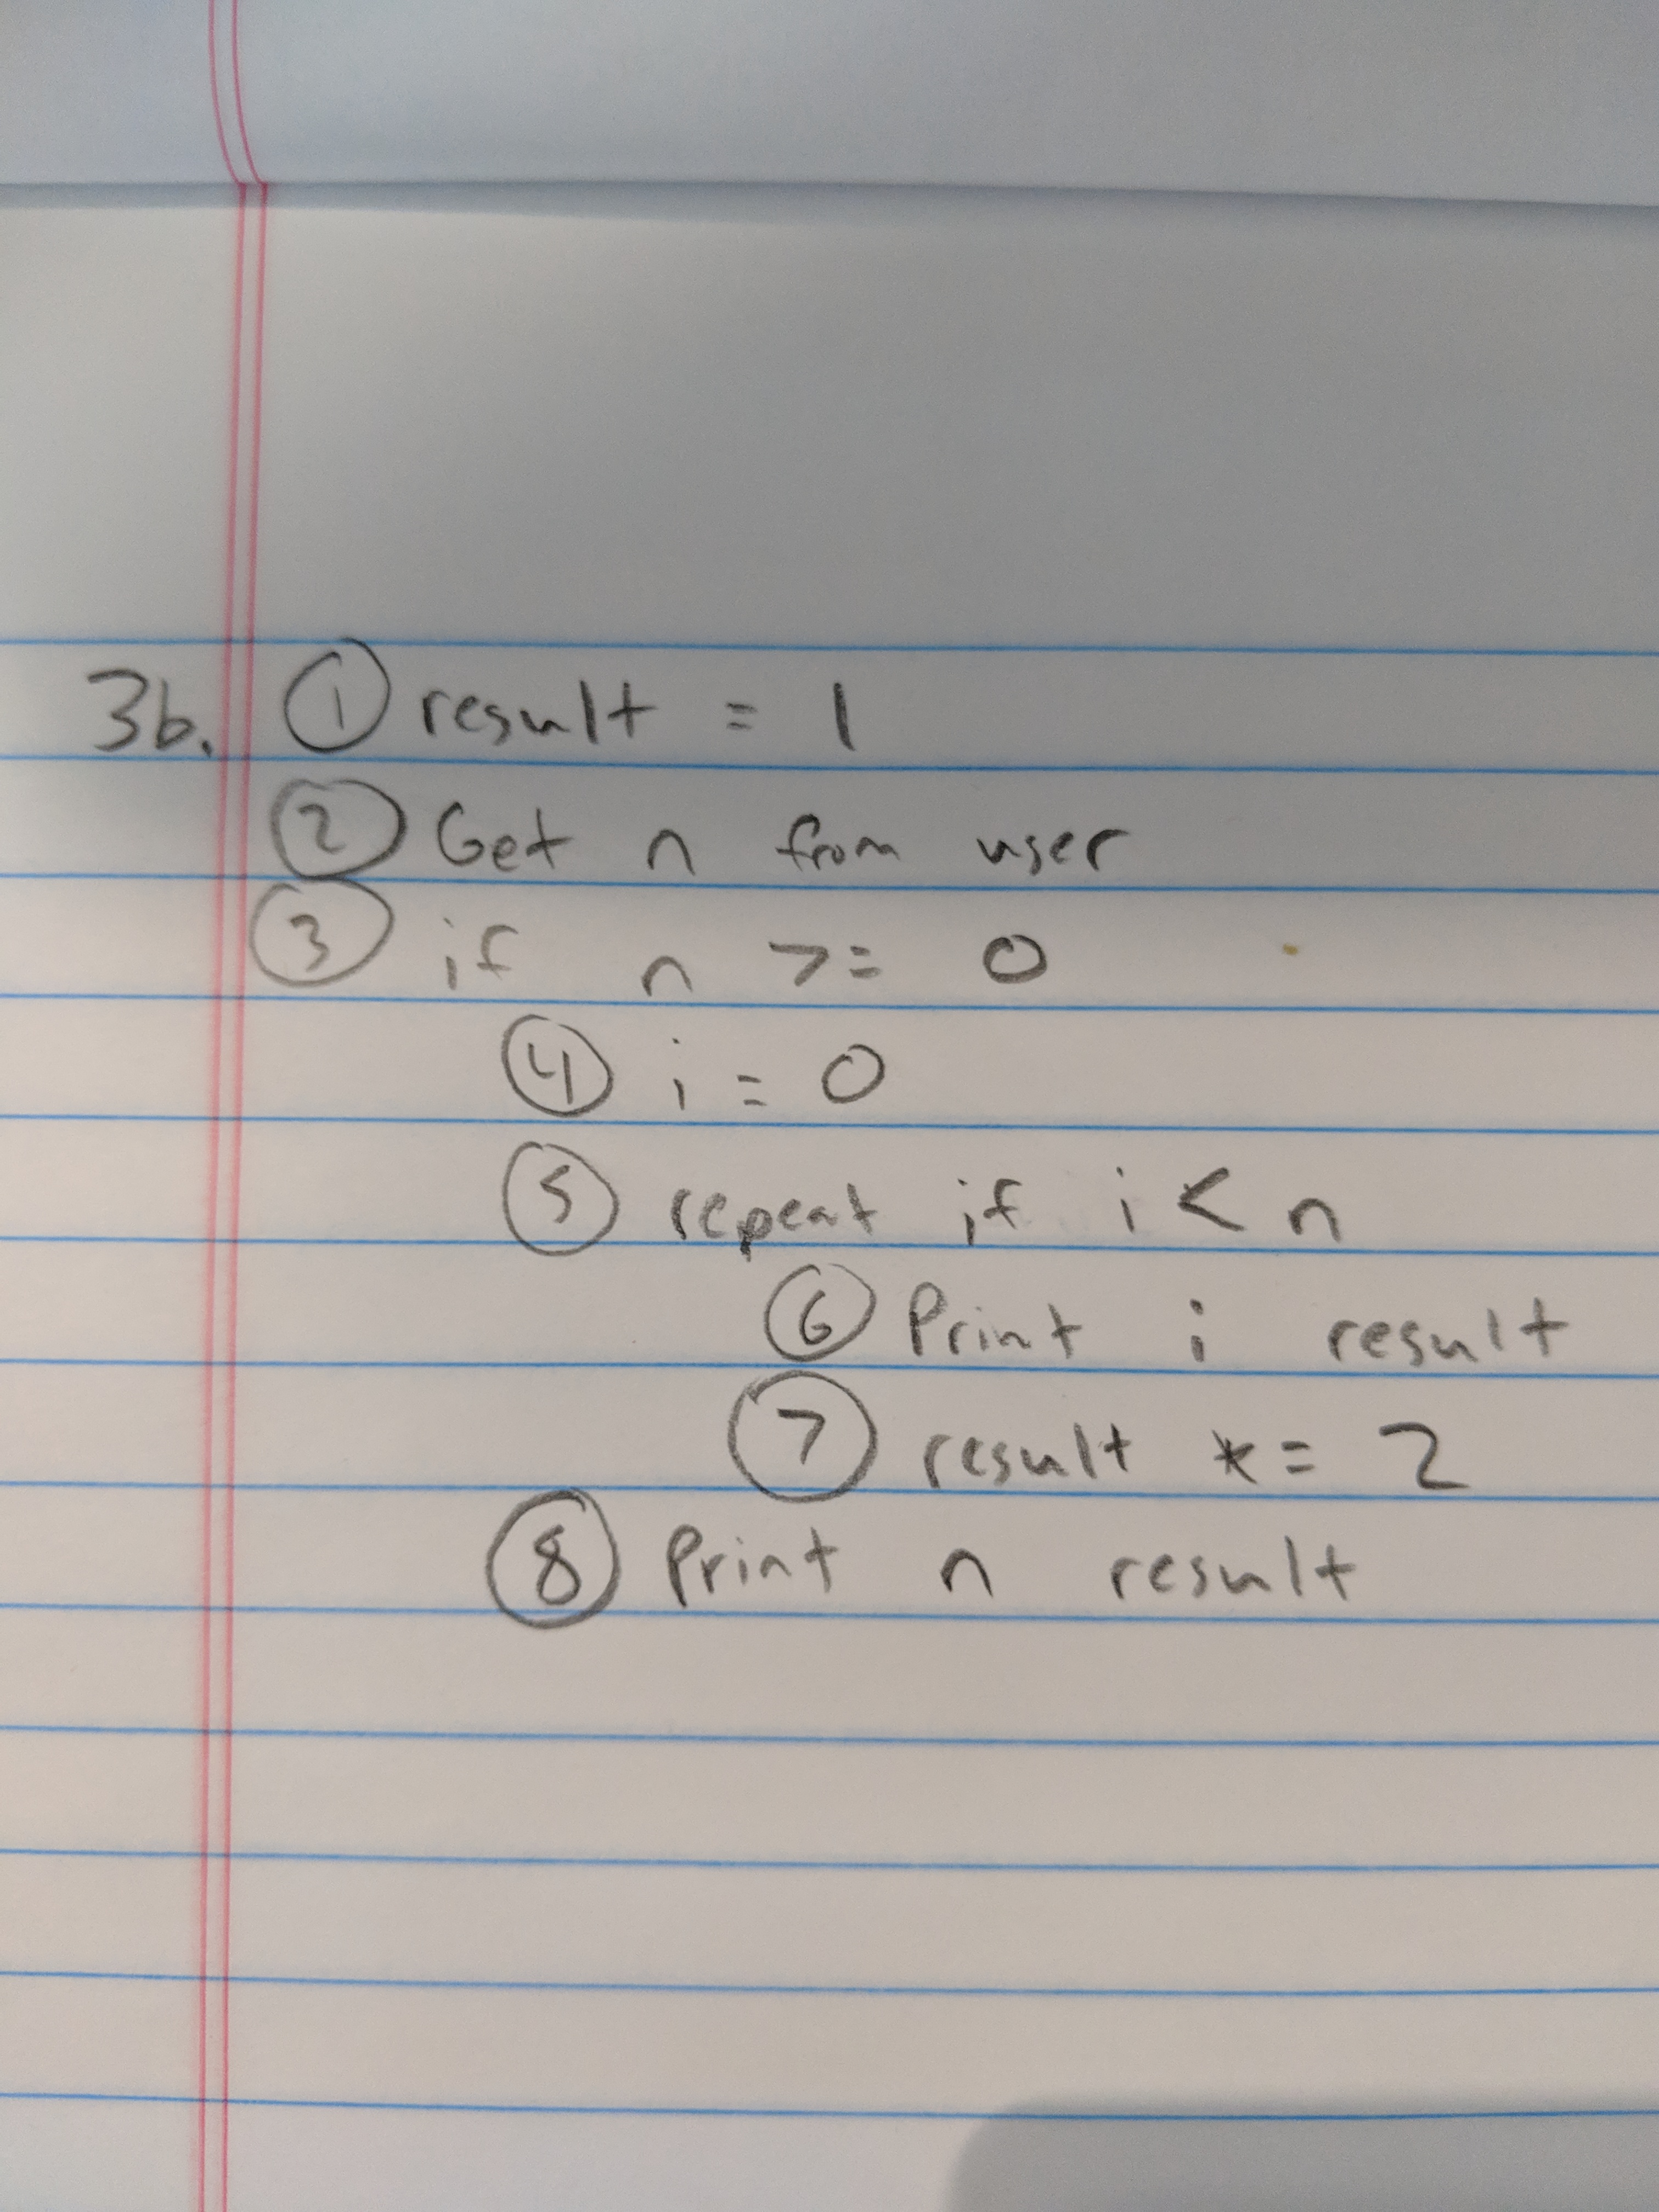 3b. ① result = 1
② Get n from user
③ if n >= 0
④ i = 0
⑤ repeat if i < n
⑥ Print i result
⑦ result *= 2
⑧ Print n result